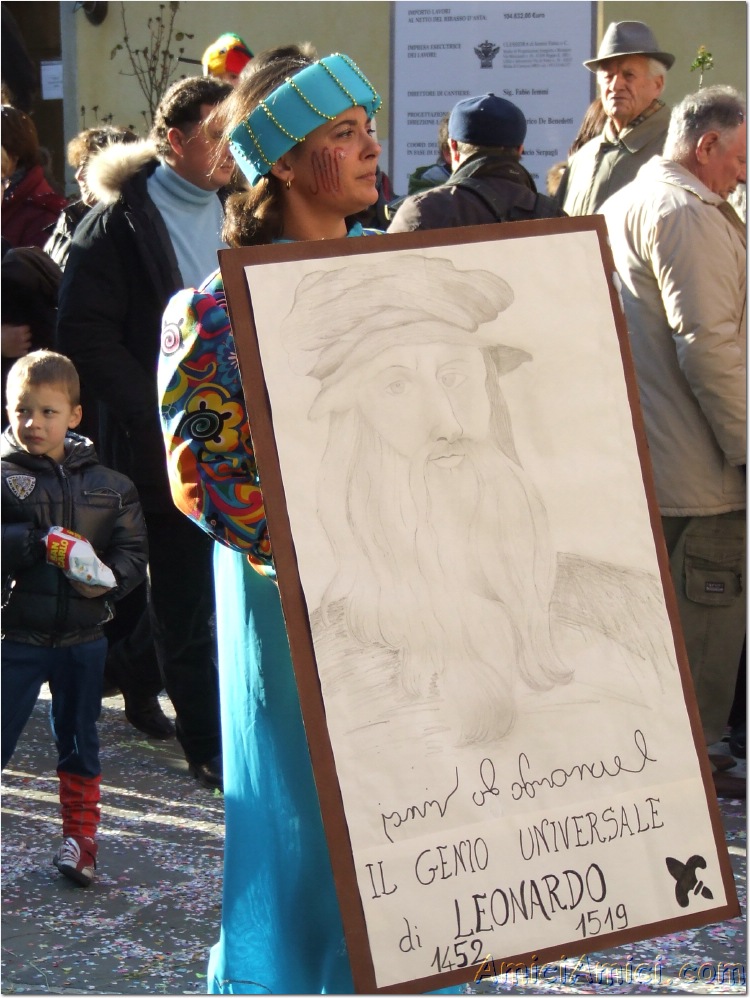 IMPORTO LAVORI
AL NETTO DEL RIBASSO D'ASTA. 104.632,00 Euro
IMPRESA ESECUTRICE
DEI LAVORI
DIRETTORE DI CANTIERE Sig. Fabio Iemmi
PROGETTAZIONE
SAN
CARLO
Leonardo da vinci
IL GENIO UNIVERSALE
di LEONARDO
1452 1519
AmiciAmici.com